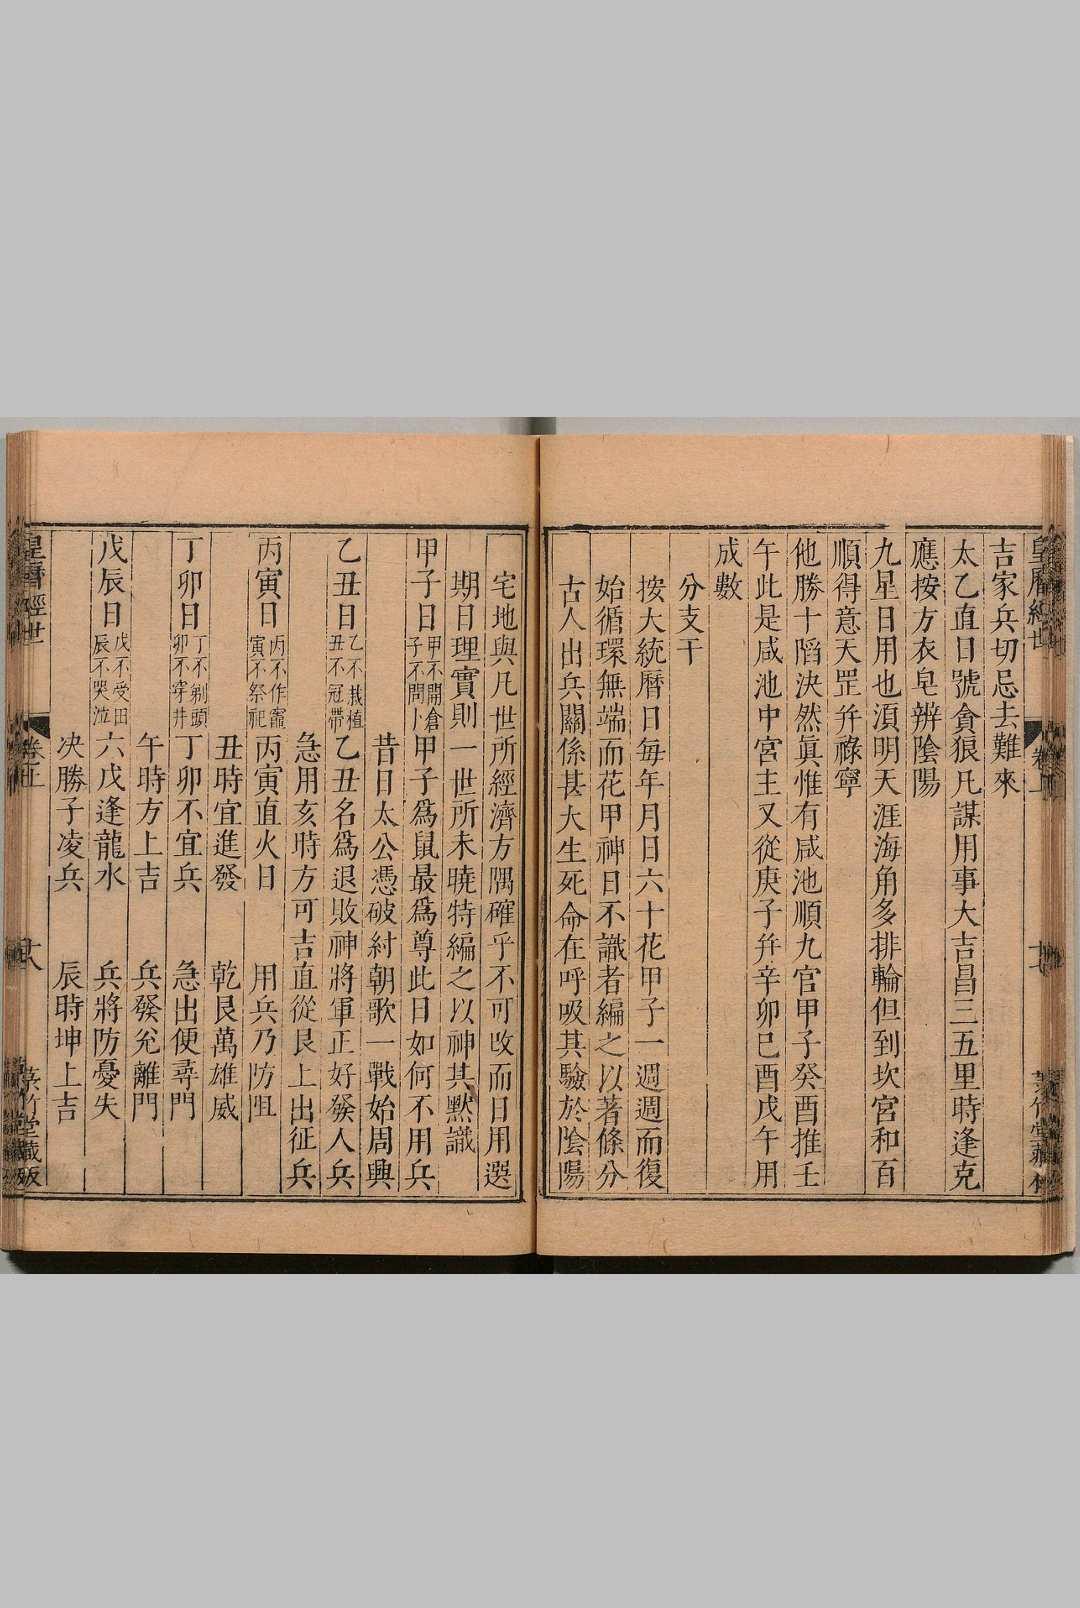 吉家兵切忌去難來
太乙直日號貪狼凡謀用事大吉昌三五里時逢克
應按方衣皂辨陰陽
九星日用也湏明天涯海角多排輪但到坎宮和百
順得意天罡并祿寧
他勝十蹈決然眞惟有咸池順九官甲子癸酉推壬
午此是咸池中宮主又從庚子并辛卯巳酉戊午用
成數
分支干
按大統曆日每年月日六十花甲子一週週而復
始循環無端而花甲神日不識者編之以著條分
古人出兵關係甚大生死命在呼吸其驗於陰陽
宅地與凡世所經濟方隅確乎不可改而日用選
期日理實則一世所未曉特編之以神其默識
甲子日甲不開倉子不問卜甲子爲鼠最爲尊此日如何不用兵
昔日太公憑破紂朝歌一戰始周興
乙丑日乙不栽植丑不冠帶乙丑名爲退敗神將軍正好發人兵
急用亥時方可吉直從艮上出征兵
丙寅日丙不作竈寅不祭祀丙寅直火日 用兵乃防阻
丑時宜進發 乾艮萬雄威
丁卯日丁不剃頭卯不穿井丁卯不宜兵 急出便尋門
午時方上吉 兵發兊離門
戊辰日戊不受田辰不哭泣六戊逢龍水 兵將防憂失
决勝子凌兵 辰時坤上吉
皇曆經世 卷五 十八 菉竹堂藏版